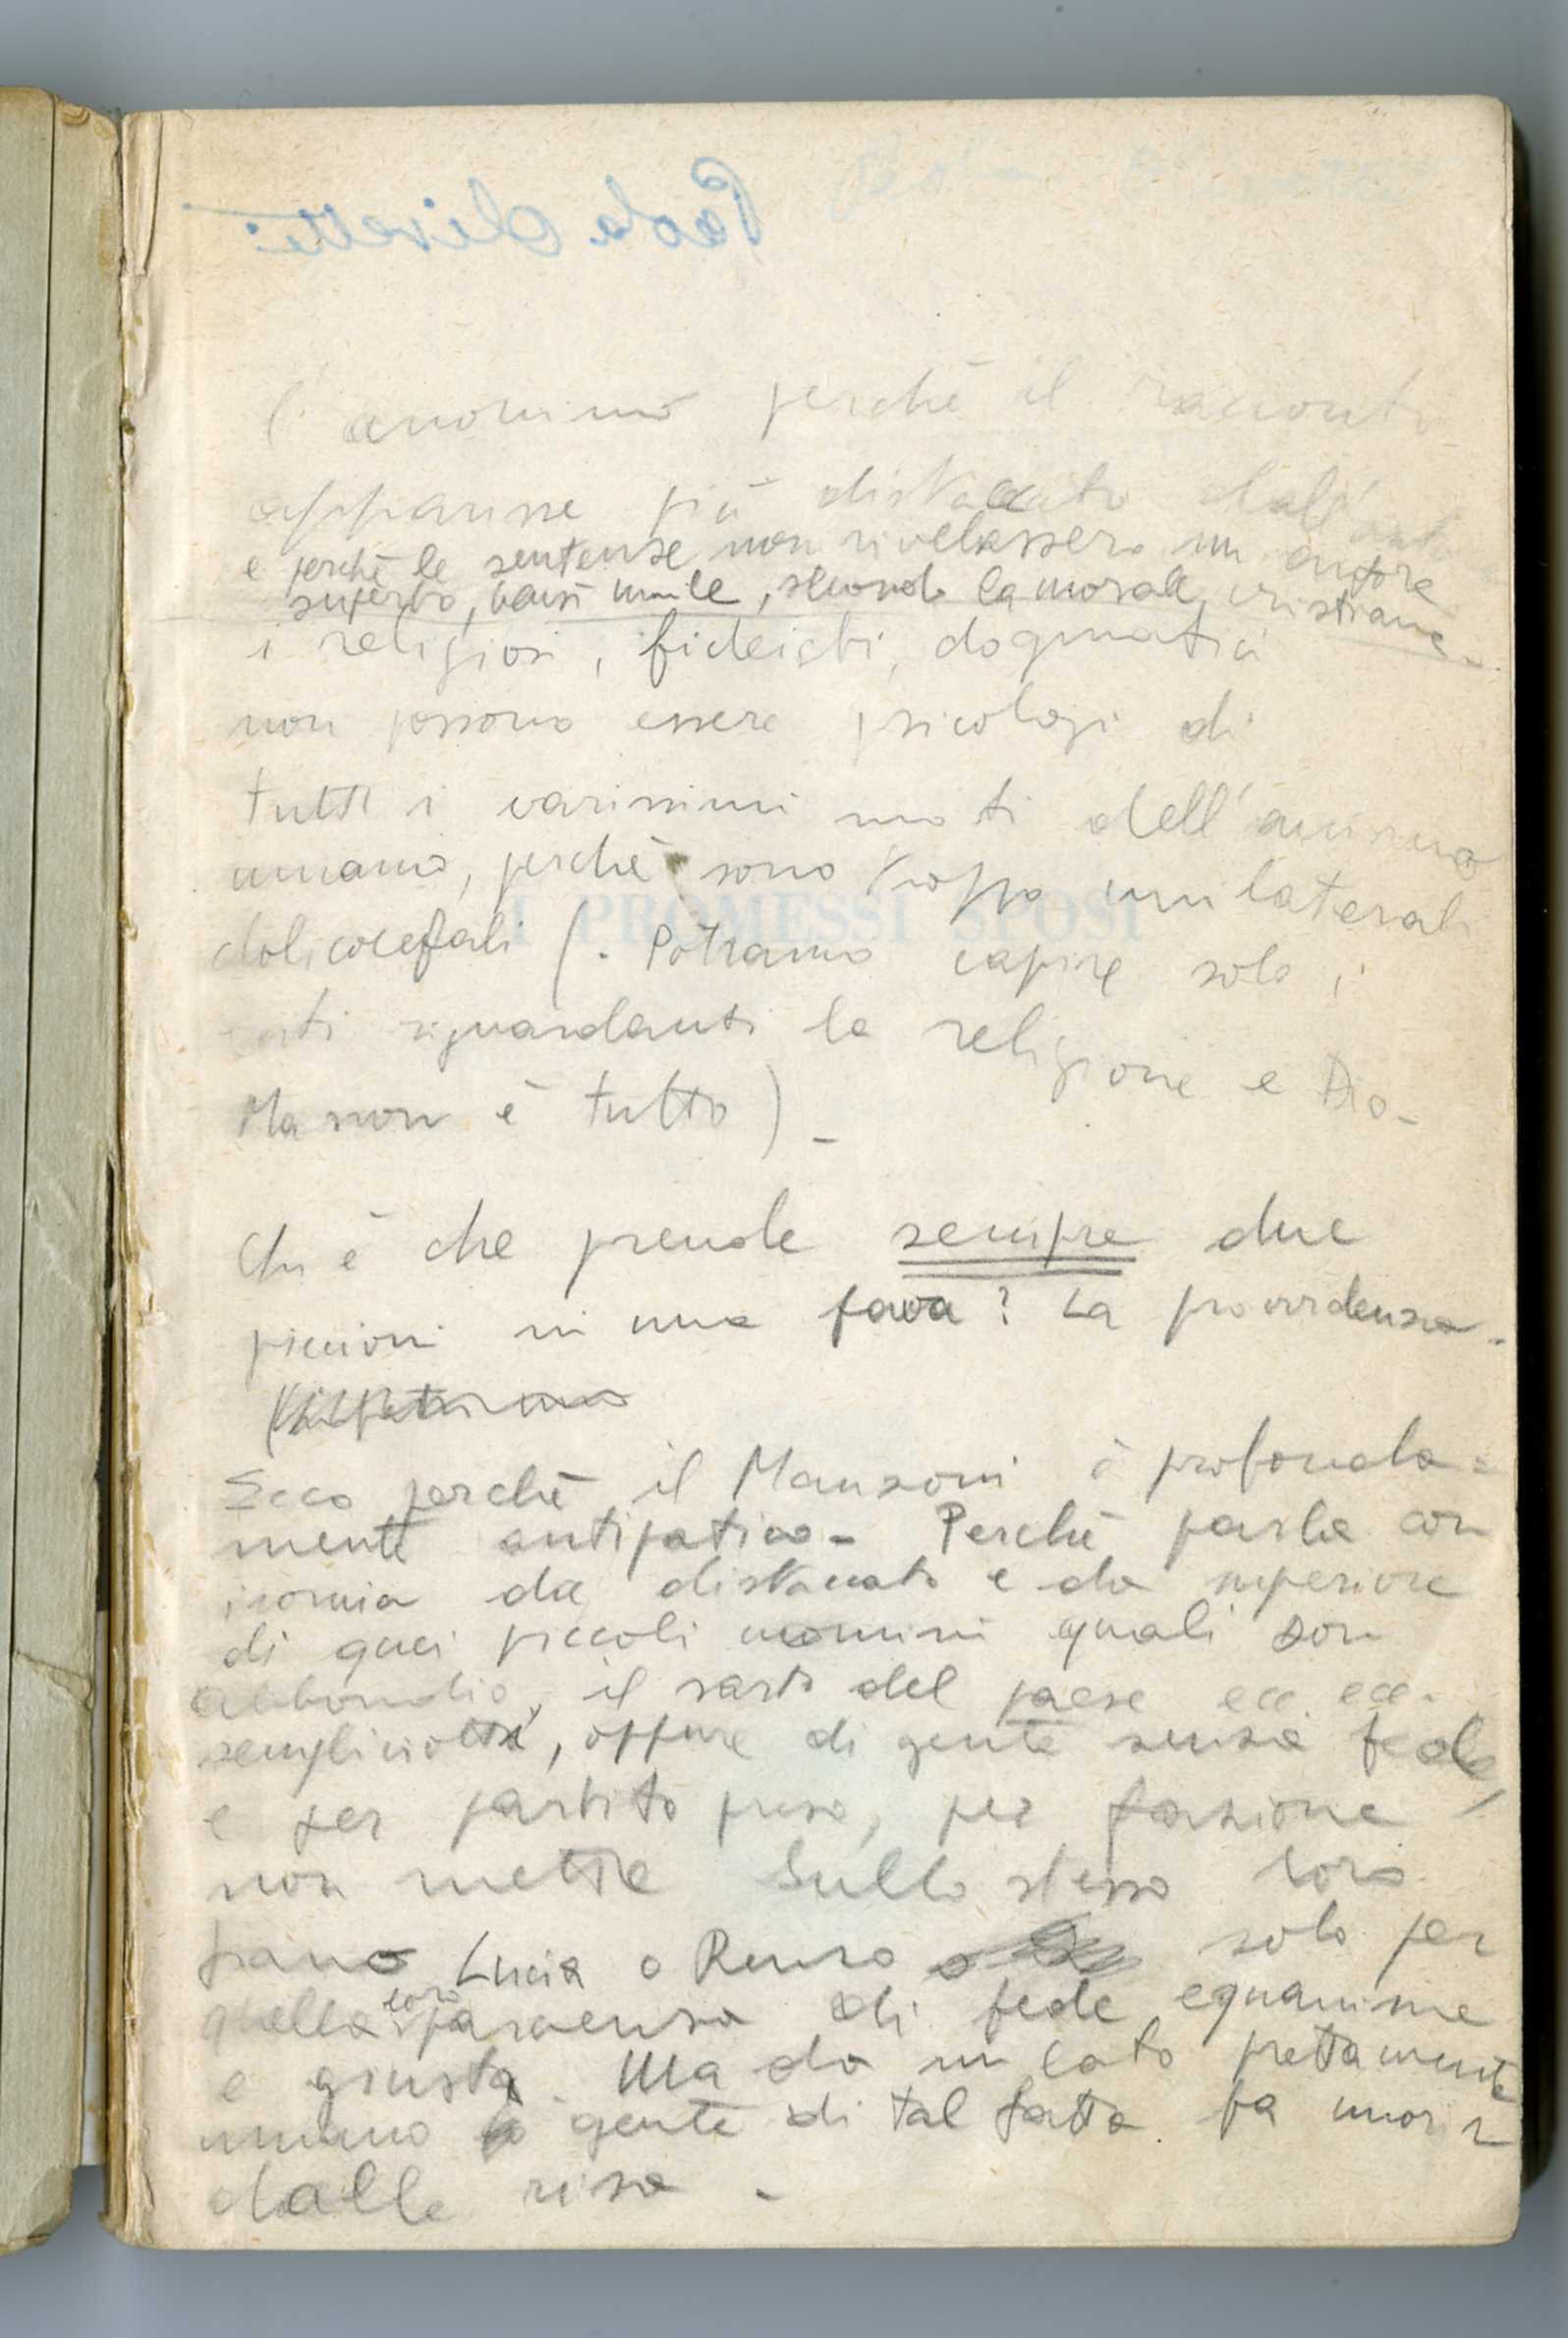 Paola Olivetti
l'anonimo perchè il racconto
apparisse più distaccato dall'
e perchè le sentenze non rivelassero un autore
superbo, bensì umile, secondo la morale cristiana -
i religiosi, fideisti, dogmatici
non possono essere psicologi di
tutti i varissimi moti dell'animo
umano, perchè sono troppo unilaterali
I PROMESSI SPOSI
dolicocefali (. Potranno capire solo i
moti riguardanti la religione e Dio -
Ma non è tutto) -
Chi è che prende sempre due
piccioni in una fava? La provvidenza.
Ecco perchè il Manzoni è profonda=
mente antipatico - Perchè parla con
ironia da distaccato e da superiore
di quei piccoli uomini quali don
abbondio, il sarto del paese ecc ecc.
sempliciotti, oppure di gente senza fede,
e per partito preso, per fazione
non mette sullo stesso loro
piano Lucia o Renzo solo per
quella loro parvenza di fede equanime
e giusta. Ma da un lato prettamente
umano gente di tal fatta fa morir
dalle risa -